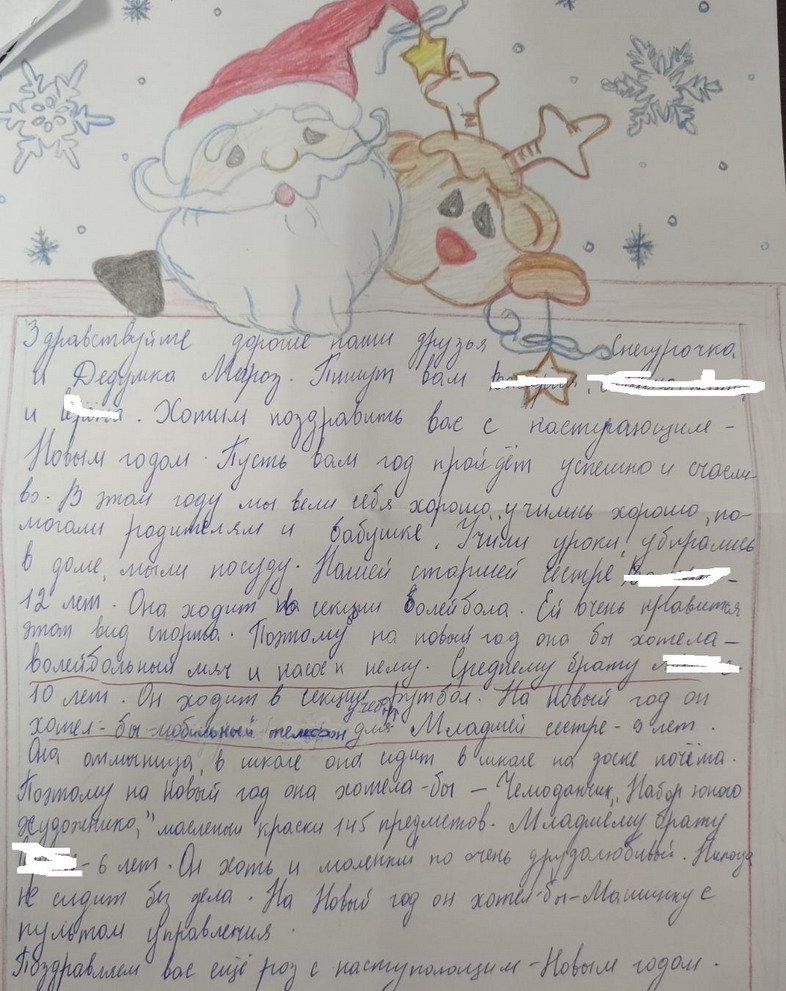 Здравствуйте дорогие наши друзья Снегурочка
и Дедушка Мороз. Пишут вам
и . Хотим поздравить вас с наступающим-
Новым годом. Пусть вам год пройдёт успешно и счасли-
во. В этом году мы вели себя хорошо, учились хорошо, по-
могали родителям и бабушке. Учили уроки, убирались
в доме, мыли посуду. Нашей старшей сестре -
12 лет. Она ходит на секции волейбола. Ей очень нравится
этот вид спорта. Поэтому на новый год она бы хотела-
волейбольный мяч и насос к нему. Среднему брату
10 лет. Он ходит в секцию футбол. На Новый год он
хотел-бы мобильный телефон для учёбы. Младшей сестре - 9 лет.
Она отличница, в школе она сидит в школе на доске почёта.
Поэтому на Новый год она хотела-бы - Чемоданчик, "Набор юного
художника," масленый краски 145 предметов. Младшему брату
- 6 лет. Он хоть и маленкий но очень друдолюбивый. Никогда
не сидит без дела. На Новый год он хотел-бы-Машинку с
пультом управления.
Поздравляем вас ещё раз с наступающим-Новым годом.